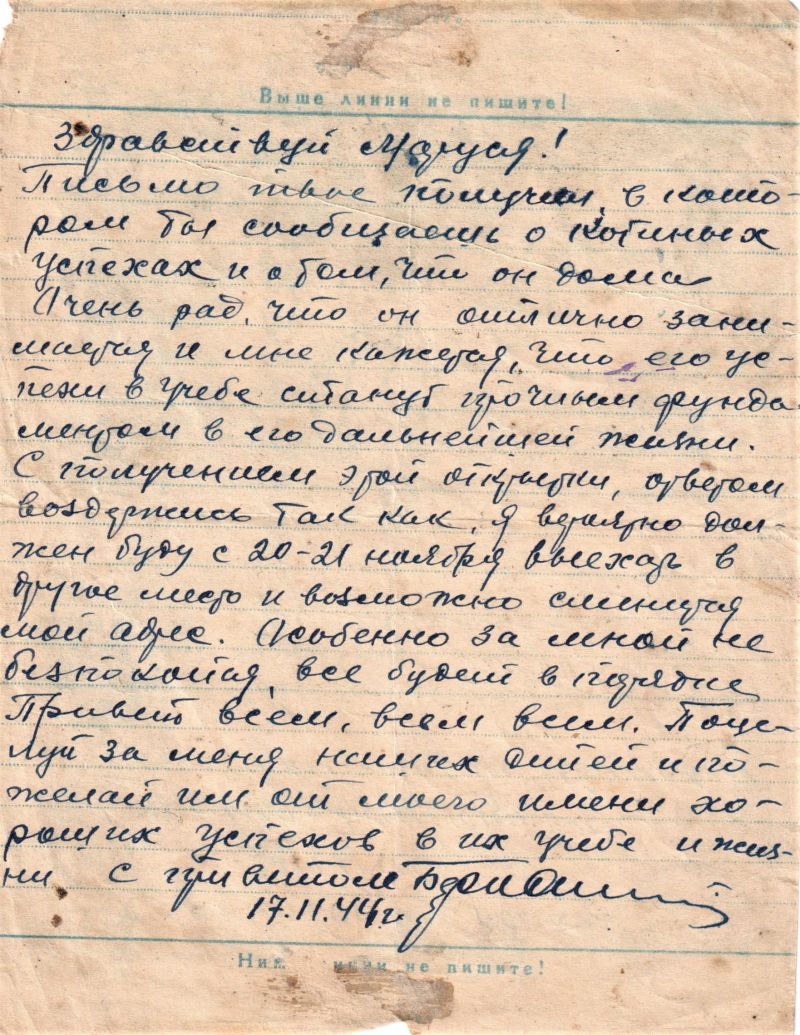 Выше линии не пишите!
Здравствуй Маруся!
Письмо твое получил, в кото-
ром ты сообщаешь о Котиных
успехах и о том, что он дома
Очень рад, что он отлично зани-
мается и мне кажется, что его ус-
пехи в учебе станут прочным фунда-
ментом в его дальнейшей жизни.
С получением этой открытки, ответом
воздержись так как, я вероятно дол-
жен буду с 20-21 ноября выехать в
другое место и возможно сменится
мой адрес. Особенно за мной не
безпокойся, все будет в порядке
Привет всем, всем всем. Поце-
луй за меня наших детей и по-
желай им от моего имени хо-
роших успехов в их учебе и жиз-
ни С приветом
17.11.44 г.
Ниже линии не пишите!